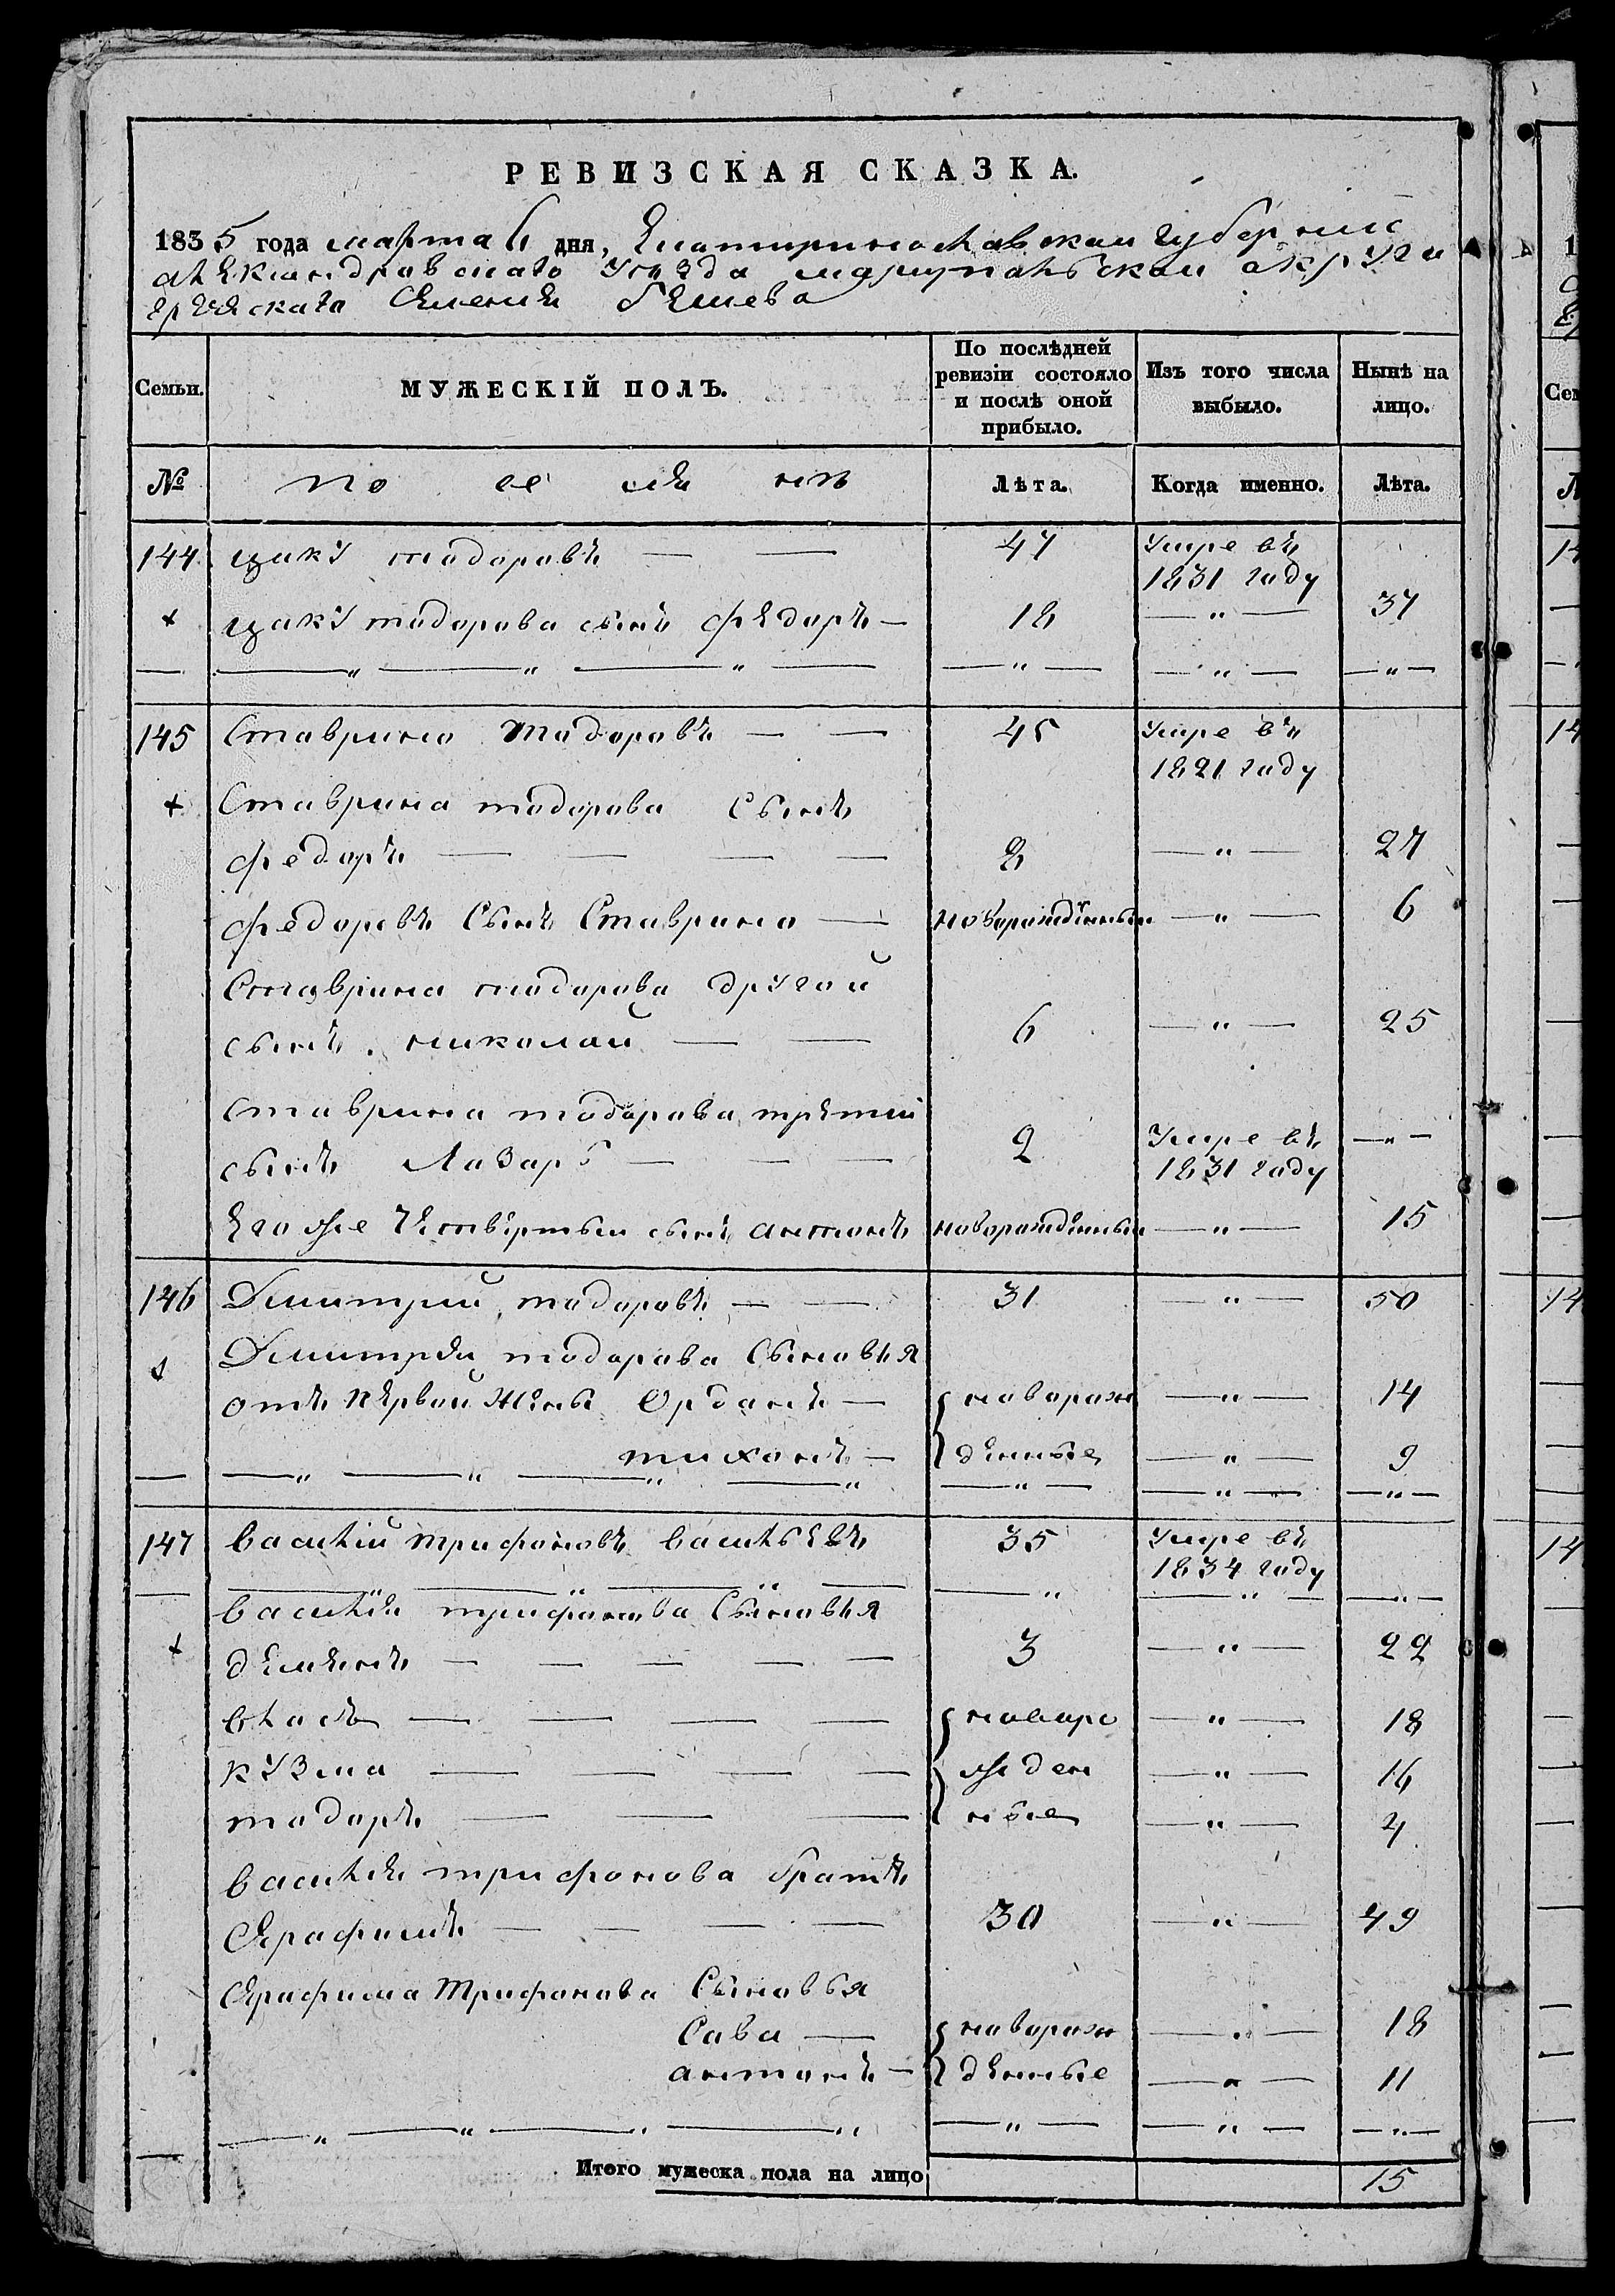 РЕВИЗСКАЯ СКАЗКА.
1835 года марта 6 дня, Екатиринославскаи губернии
александравскаго уезда мариупальскаи акруги
греческаго селения бешева
Семьи. МУЖЕСКІЙ ПОЛЪ. По послѣдней ревизіи состояло и послѣ оной прибыло. Изъ того числа выбыло. Нынѣ на лицо.
№ поселянъ Лѣта. Когда именно. Лѣта.
144 цаку тодоровъ — — 47 умре въ 1831 гаду
+ цаку тодорова сынъ федоръ — 18 — " — 37
— — " — " — " — — " — — " — — " —
145 Ставрино тодоровъ — — 45 умре въ 1821 гаду
+ Ставрина тодорова Сынъ
федоръ — — — — 8 — " — 27
федоровъ Сынъ Ставрино — новорождённыи — " — 6
Ставрина тодорова другой
сынъ николай — — 6 — " — 25
Ставрина тодорова третий
сынъ Лазарь — — — 2 умре въ 1831 гаду — " —
Его же четвёртыи сынъ антонъ новорождённыи — " — 15
146 Дмитрий тодоровъ — — 31 — " — 50
Дмитрея тодорова Сыновья
отъ первой жёны Юрданъ — { наворож — " — 14
тихонъ — } денные — " — 9
— — " — " — " — " — " — — " — — " —
147 василий трифоновъ васильевъ 35 умре въ 1834 гаду
— — " — " — " — — " — " — — " —
василия трифонова Сыновья
+ демянъ — — — — — 3 — " — 22
власъ — — — — { наваро — " — 18
кузма — — — — } жден — " — 16
тодоръ — — — ные — " — 4
василия трифонова братъ
Серафимъ — — — — 30 — " — 49
Серафима Трифонова Сыновья
Сава — { наворож — " — 18
антонъ — } денные — " — 11
— — " — " — " — " — " — — " — — " —
Итого мужеска пола на лицо 15